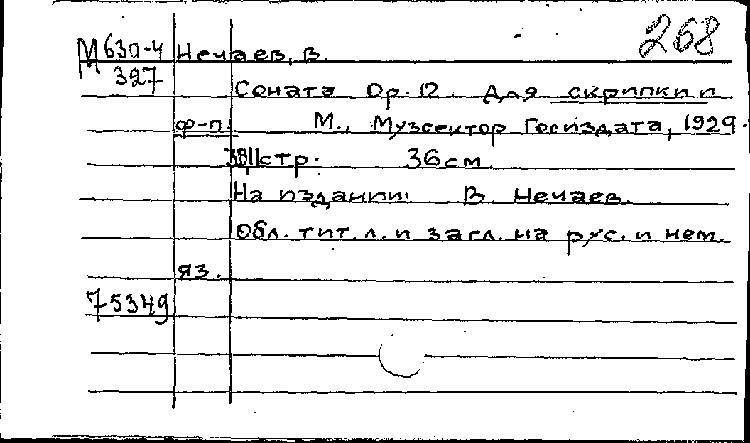 268
М 630-4 Нечаев, В.
327
Соната Op. 12. Для скрипки и
ф-п. М., Музсектор Госиздата, 1929.
стр. 36 см
На издании: В. Нечаев.
Обл. тит. л. и загл. на рус. и нем.
яз.
75349